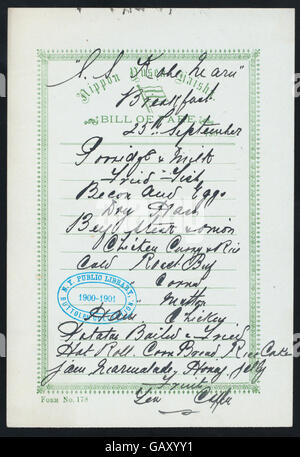 "S. S. Kobe Maru"
Nippon Yusen Kaisha
Breakfast
BILL OF FARE
23rd September
Porridge & Milk
Fried Fish
Becon and Eggs
Dry Hash
Beef Steak & onion
Chicken Curry & Rice
Cold Roast Beef
Corned "
Mutton
Ham Chicken
Potatos Boiled & Fried
Hot Roll. Corn Bread. Rice Cake
Jam Marmalade, Honey, Jelly
Fruits
Tea Coffee
N.Y. PUBLIC LIBRARY,
1900-1901
FORM NO. 178
alamy
Image ID: GAXYY1
www.alamy.com